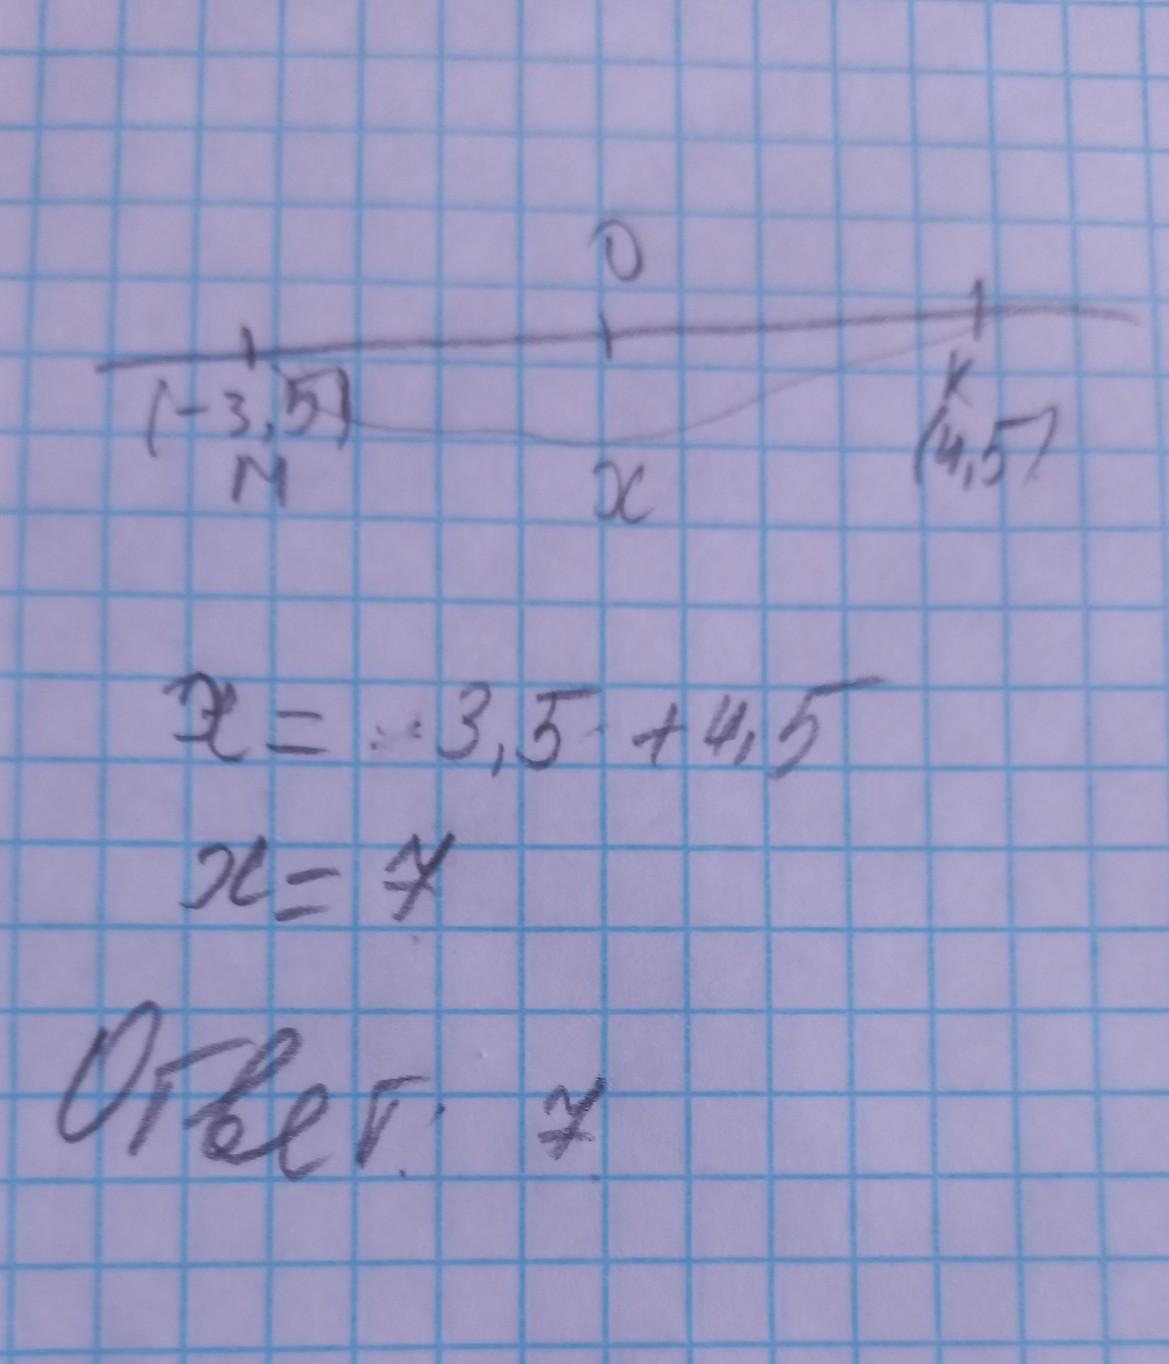 0
(-3,5)
M
x
K
(4,5)
x = 3,5 + 4,5
x = 7
Ответ: 7.